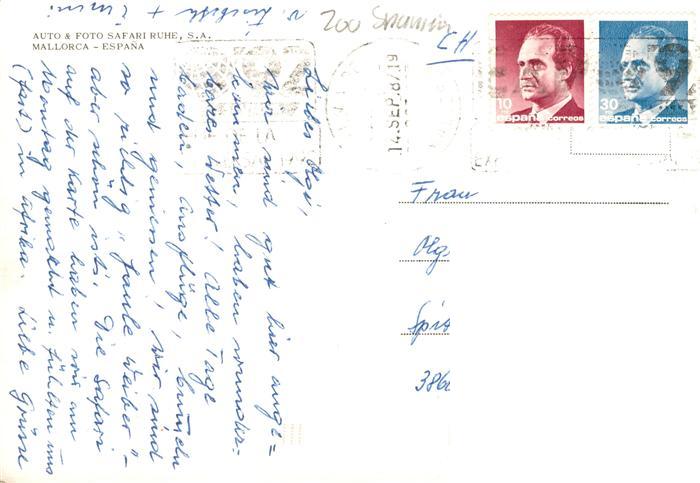 AUTO & FOTO SAFARI RUHE, S.A.
MALLORCA - ESPAÑA
Liebe Olgi,
wir sind gut hier ange=
kommen, haben wunder-
bares Wetter! Alle Tage
baden, Ausflüge, bummeln
und geniessen! wir sind
so richtig "faule Weiber" -
aber schön ists. Die Safari
auf der Karte haben wir am
Montag gemacht u. fühlten uns
(fast) in Afrika. Liebe Grüsse
v. + Emmi
200
CH
14.SEP.87/19
10
españa correos
30
españa correos
Frau
Olg
Spit
386